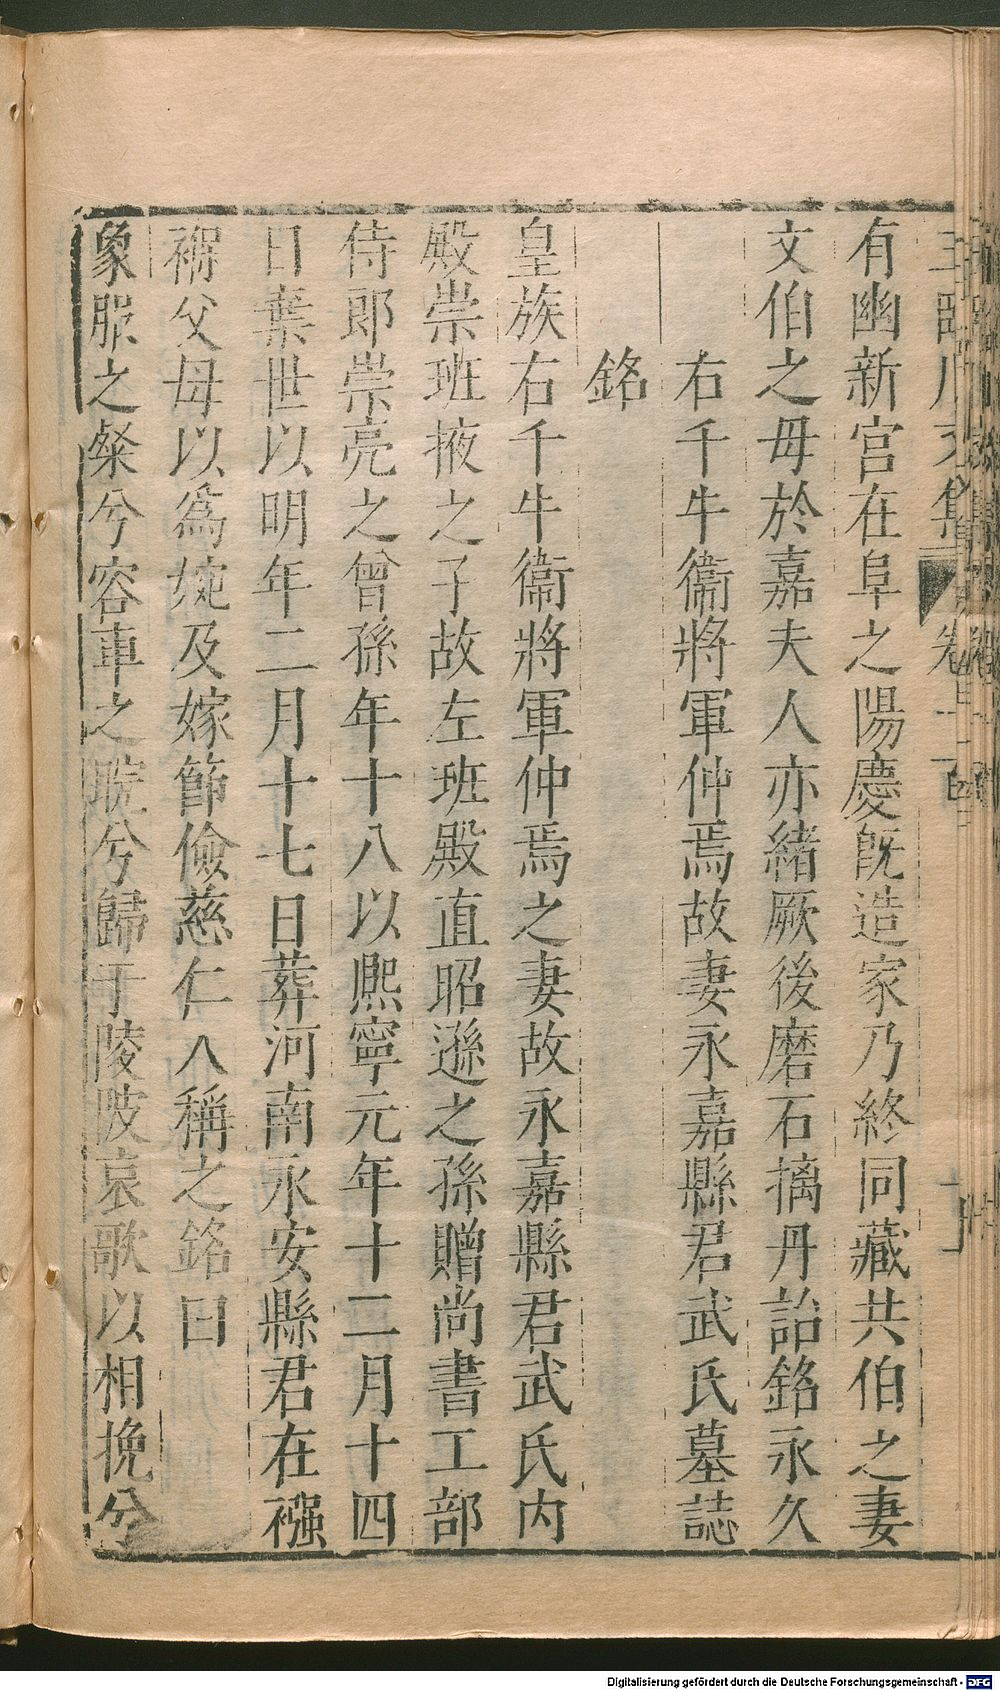 王臨川文集 卷
有幽新宮在阜之陽慶既造家乃終同藏共伯之妻
文伯之母於嘉夫人亦緒厥後磨石摛丹詒銘永久
右千牛衞將軍仲焉故妻永嘉縣君武氏墓誌
銘
皇族右千牛衞將軍仲焉之妻故永嘉縣君武氏内
殿崇班掖之子故左班殿直昭遜之孫贈尚書工部
侍郎崇亮之曾孫年十八以熈寧元年十二月十四
日棄世以明年二月十七日葬河南永安縣君在襁
褓父母以爲婉及嫁節儉慈仁人稱之銘曰
象服之粲兮容車之晥兮歸于陵陂哀歌以相挽兮
Digitalisierung gefördert durch die Deutsche Forschungsgemeinschaft - DFG